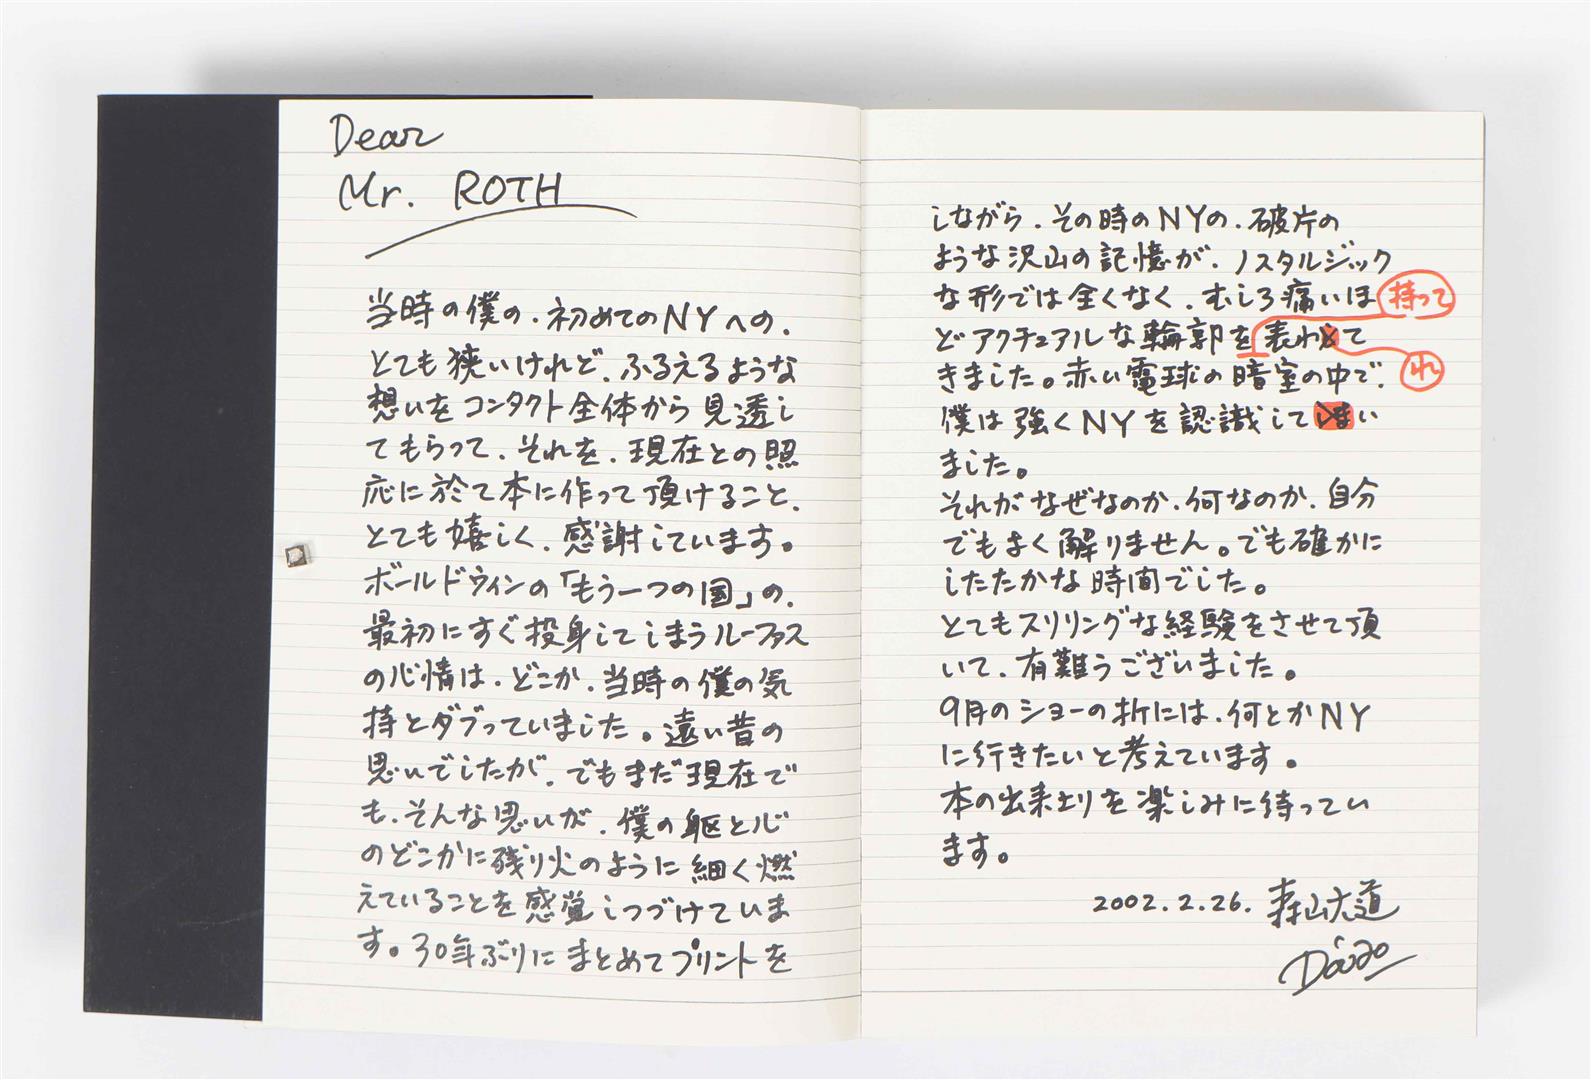 Dear
Mr. ROTH
当時の僕の、初めてのNYへの、
とても狭いけれど、ふるえるような
想いをコンタクト全体から見透し
てもらって、それを、現在との照
応に於て本に作って頂けること、
とても嬉しく、感謝しています。
ボールドウィンの「もう一つの国」の、
最初にすぐ投身してしまうルーファス
の心情は、どこか、当時の僕の気
持とダブっていました。遠い昔の
思いでしたが、でもまだ現在で
も、そんな思いが、僕の躯と心
のどこかに残り火のように細く燃
えていることを感覚しつづけていま
す。30年ぶりにまとめてプリントを
しながら、その時のNYの、破片の
ような沢山の記憶が、ノスタルジック
な形では全くなく、むしろ痛いほ
持って
どアクチュアルな輪郭を表わて
れ
きました。赤い電球の暗室の中で、
僕は強くNYを認識してい
ました。
それがなぜなのか、何なのか、自分
でもよく解りません。でも確かに
したたかな時間でした。
とてもスリリングな経験をさせて頂
いて、有難うございました。
9月のショーの折には、何とかNY
に行きたいと考えています。
本の出来上りを楽しみに待ってい
ます。
2002.2.26. 森山大道
Daido